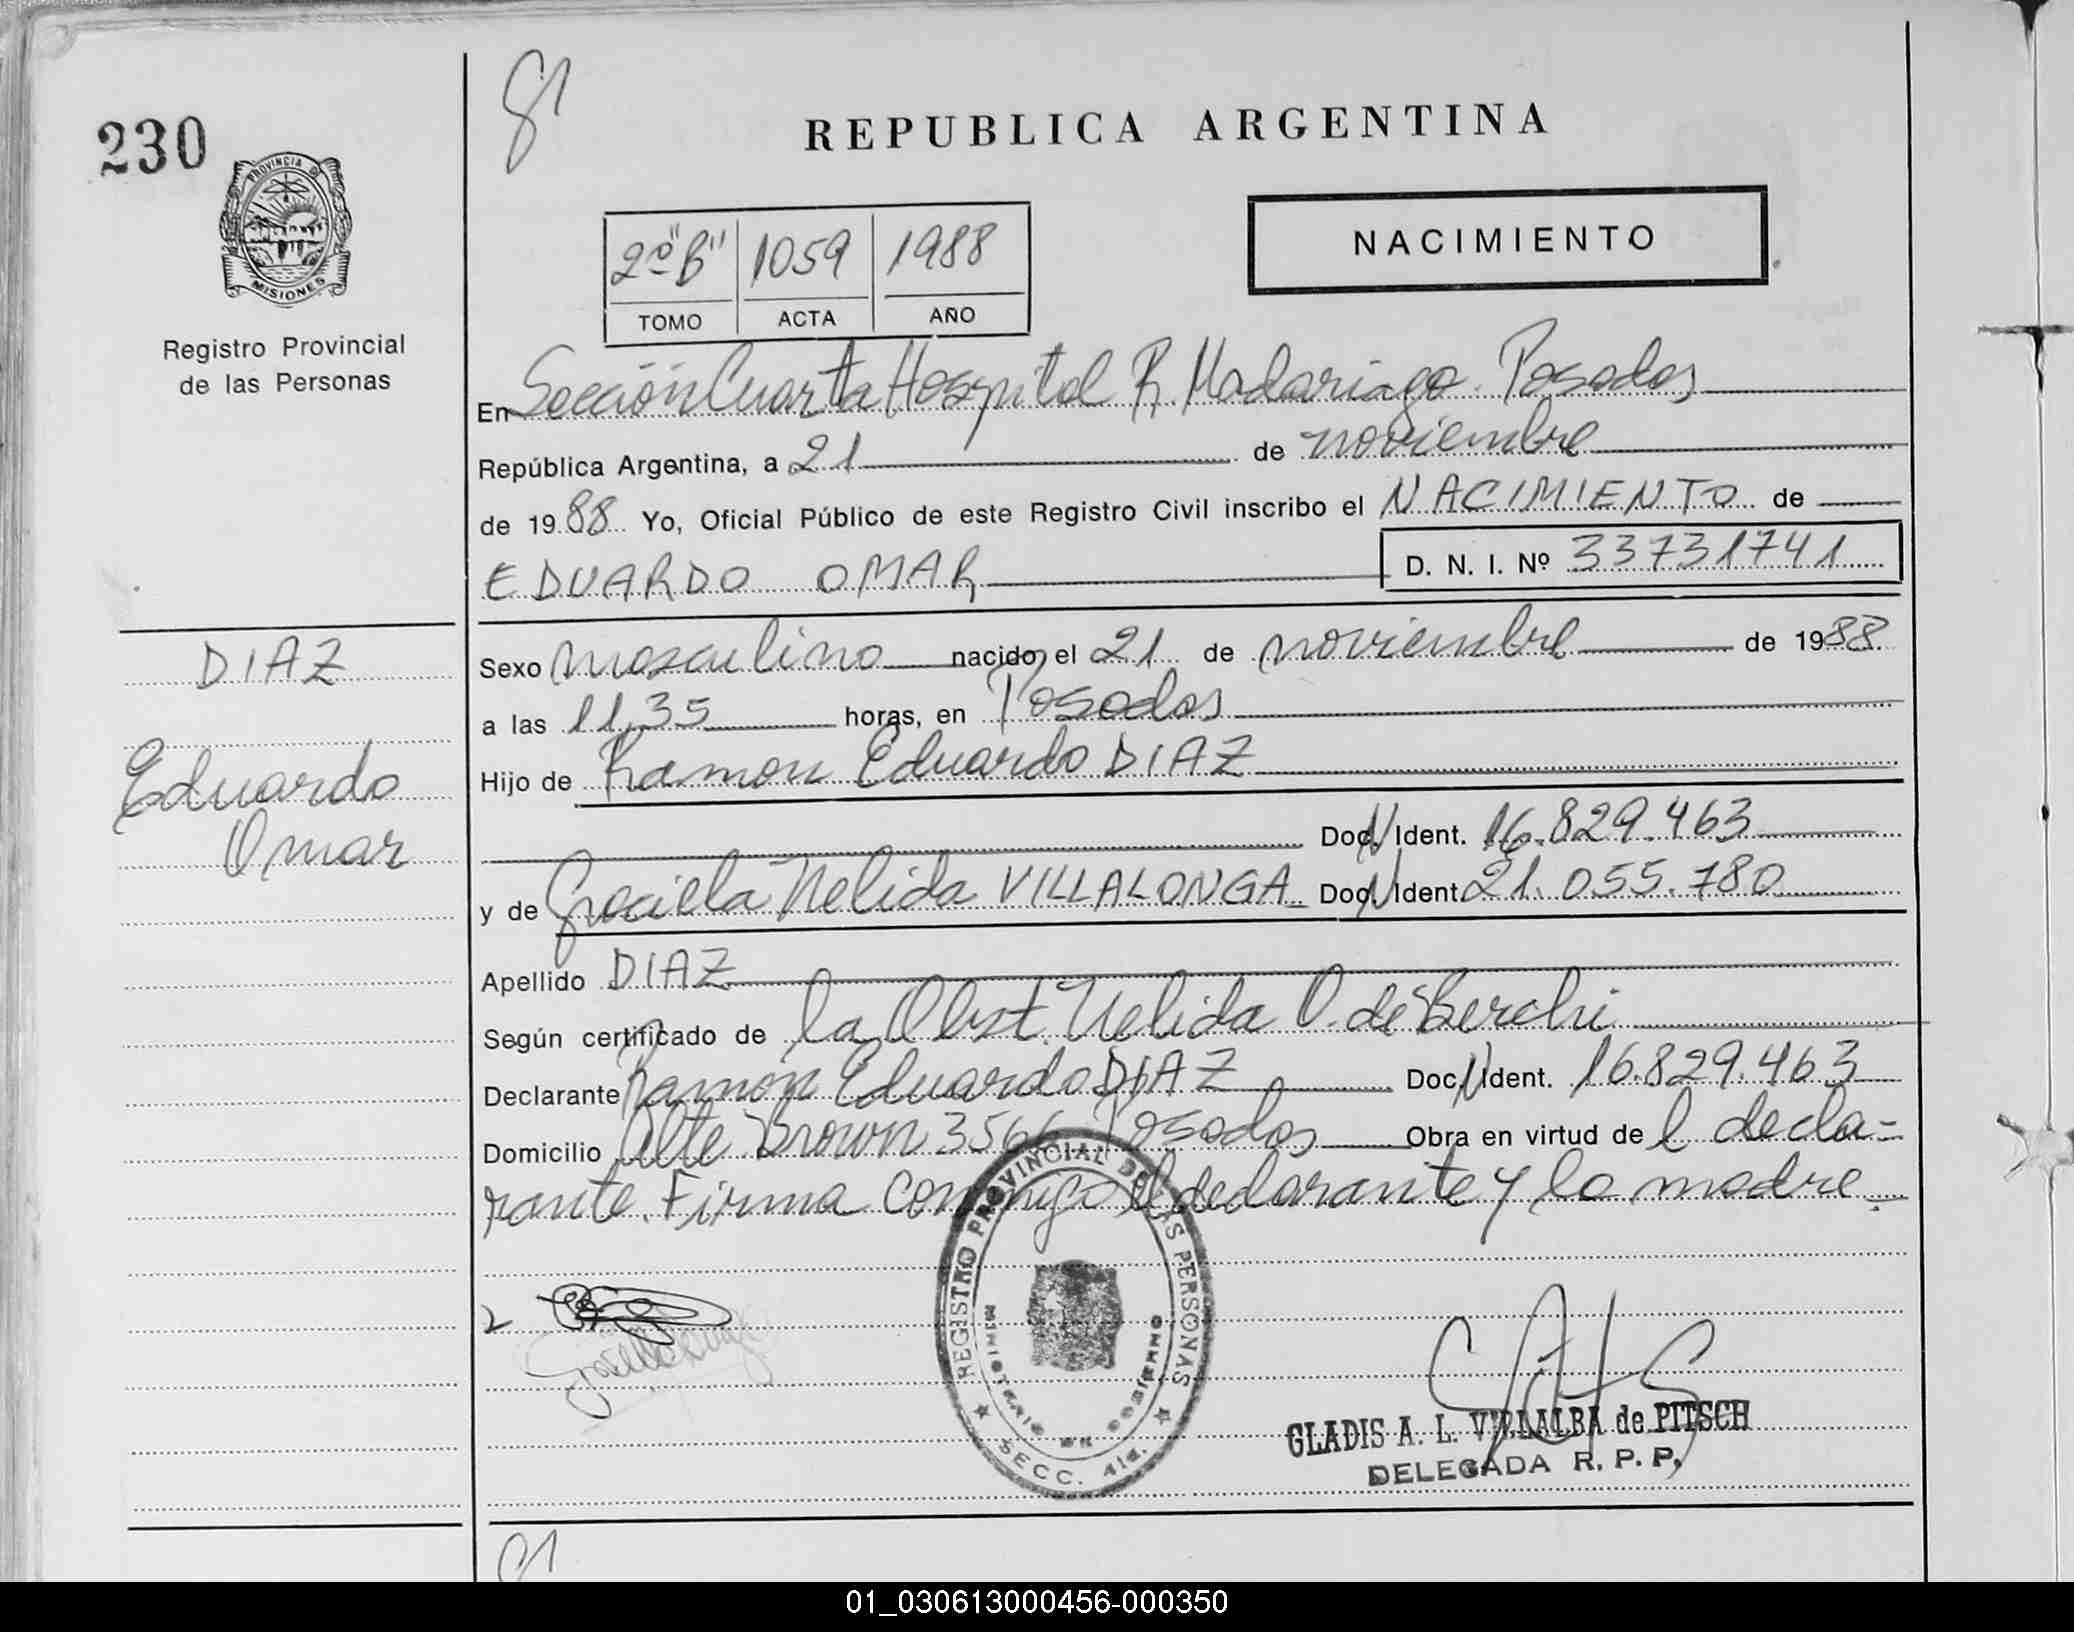 230
81
REPUBLICA ARGENTINA
PROVINCIA DE
MISIONES
Registro Provincial
de las Personas
2º "B" 1059 1988
TOMO ACTA AÑO
NACIMIENTO
En Sección Cuarta Hospital R. Madariaga. Posadas
República Argentina, a 21 de noviembre
de 1988 Yo, Oficial Público de este Registro Civil inscribo el NACIMIENTO de
EDUARDO OMAR D. N. I. Nº 33731741
DIAZ
Eduardo
Omar
Sexo masculino nacido el 21 de noviembre de 1988.
a las 11,35 horas, en Posadas
Hijo de Ramon Eduardo DIAZ
Doc. N Ident. 16.829.463
y de Graciela Nelida VILLALONGA Doc. N Ident 21.055.780
Apellido DIAZ
Según certificado de la Obst. Nelida O. de Berchi
Declarante Ramon Eduardo DIAZ Doc. N Ident. 16.829.463
Domicilio Alte Brown 3566 Posadas Obra en virtud de l decla-
rante. Firma conmigo el declarante y la madre.
2
REGISTRO PROVINCIAL DE LAS PERSONAS
MINISTERIO DE GOBIERNO
SECC. 4ta.
GLADIS A. L. VILLALBA de PITSCH
DELEGADA R. P. P.
01_030613000456-000350